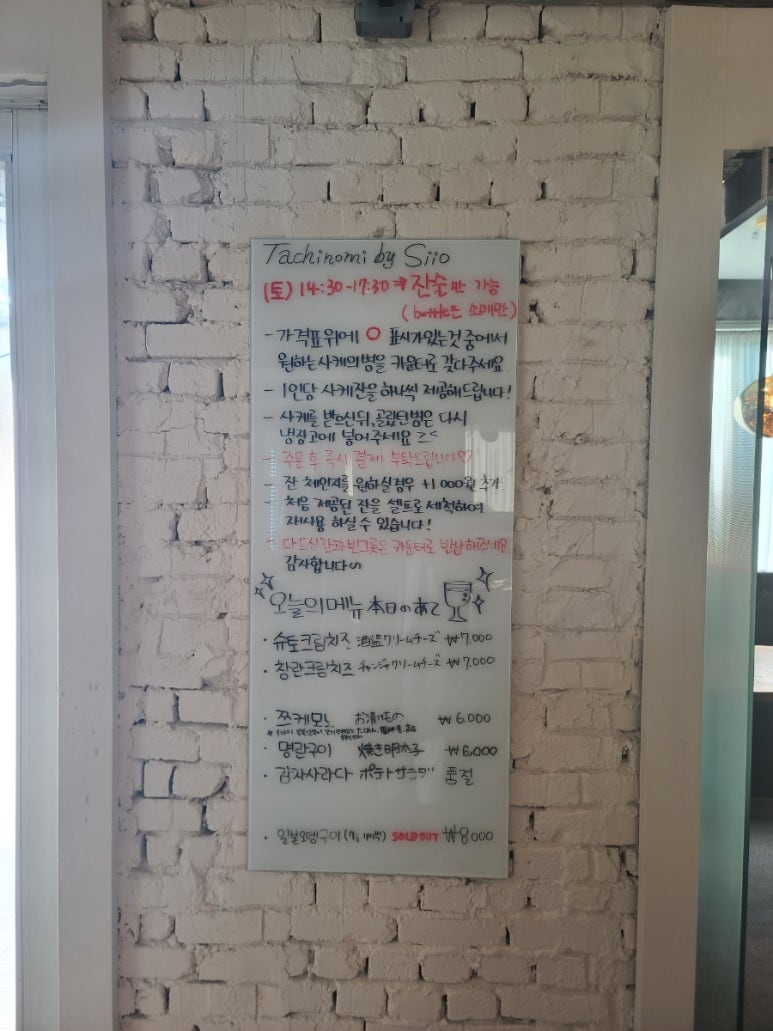 Tachinomi by Siio
(토) 14:30-17:30 → 잔술만 가능
(bottle은 소매만)
- 가격표위에 O 표시가있는것 중에서
원하는사케의병을 카운터로 갖다주세요
- 1인당 사케잔을 하나씩 제공해드립니다!
- 사케를 받으신뒤, 골랐던병은 다시
냉장고에 넣어주세요 >.<
- 주문 후 즉시 결제 부탁드립니다♡
- 잔 체인지를 원하실경우 +1000원 추가
- 처음 제공된 잔을 셀프로 세척하여
재사용 하실 수 있습니다!
- 다드신잔과빈그릇은 카운터로 반납해주세요
감사합니다~
오늘의메뉴 本日のあて
· 슈토크림치즈 酒盗クリームチーズ ₩7,000
· 창란크림치즈 チャンジャクリームチーズ ₩7,000
· 쯔케모노 お漬けもの ₩6,000
· 명란구이 焼き明太子 ₩6,000
· 감자사라다 ポテトサラダ 품절
· 일본오뎅구이 SOLD OUT ₩8,000